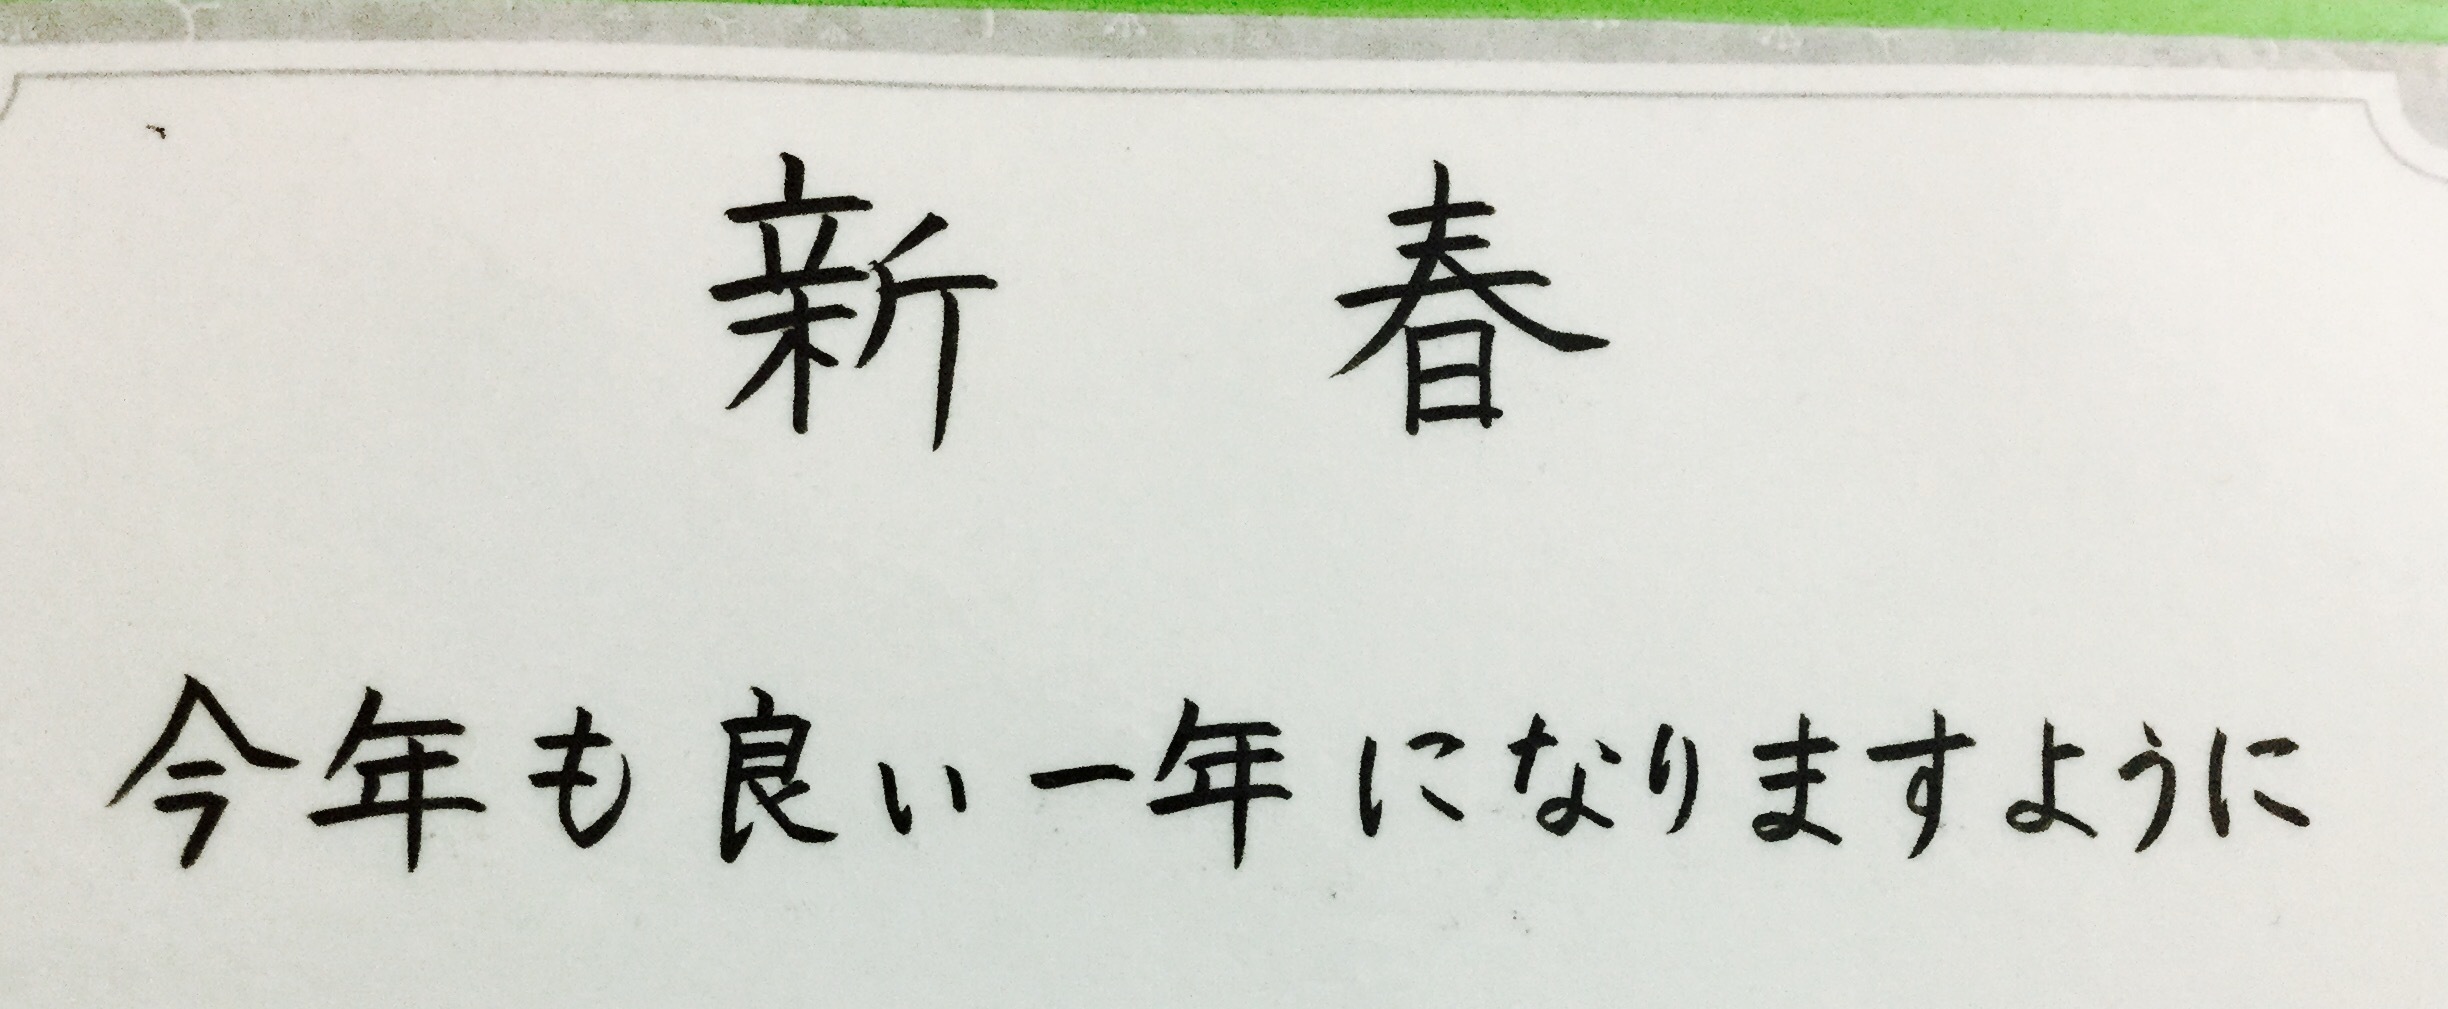 新春
今年も良い一年になりますように